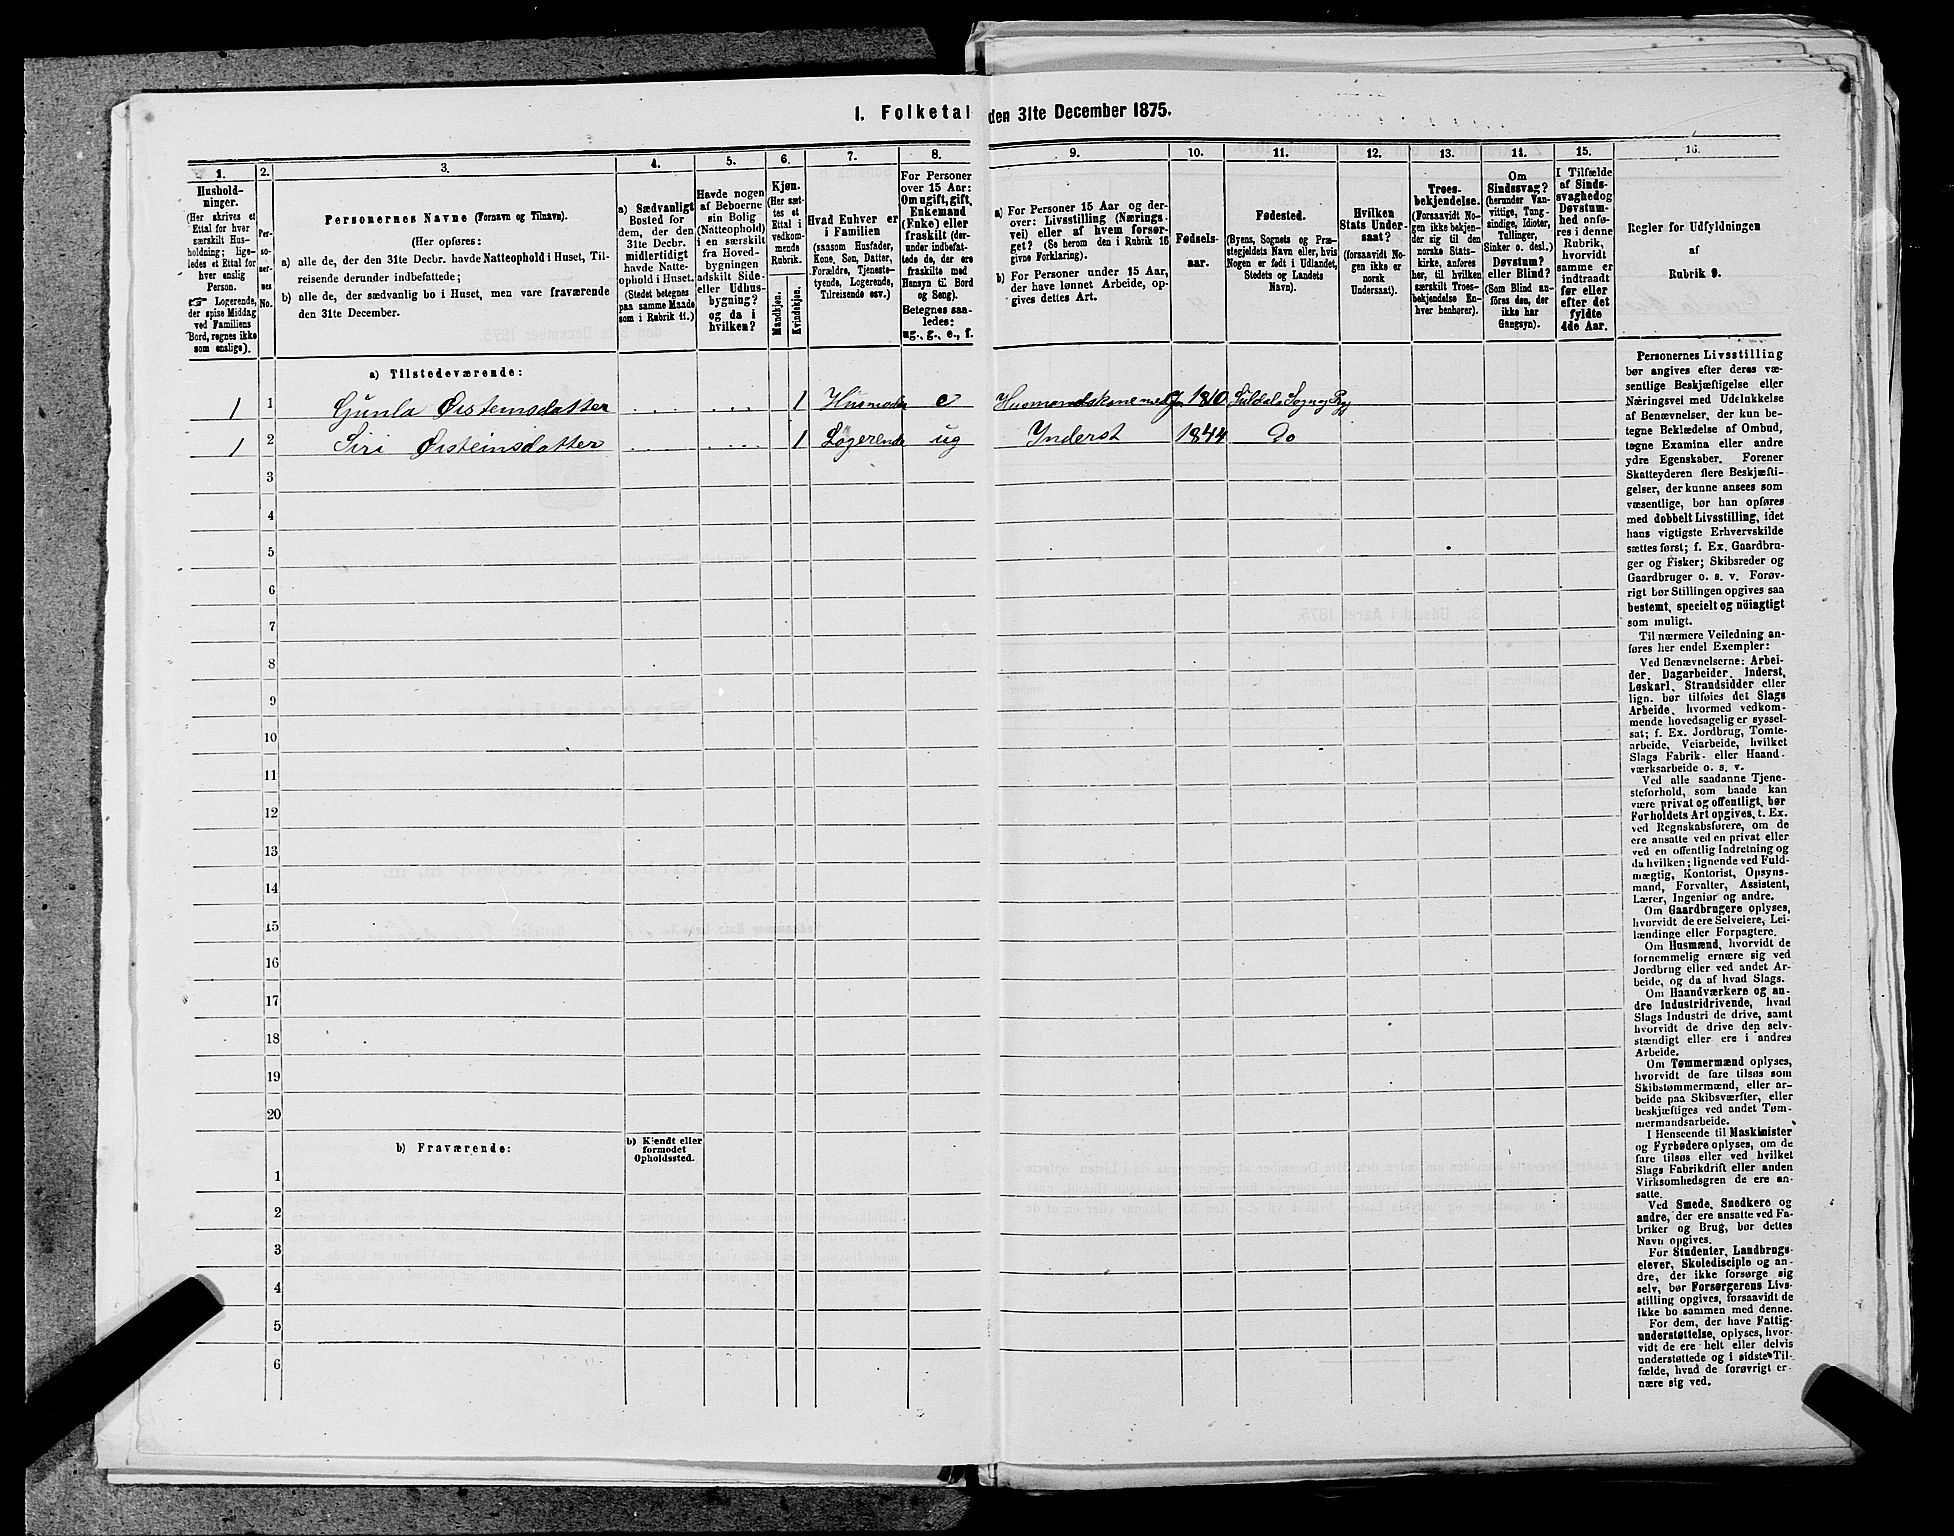 1. Folketal den 31te December 1875.
1. 2. 3. 4. 5. 6. 7. 8. 9. 10. 11. 12. 13. 14. 15. 16.
Hushold-
ninger.
(Her skrives et
Ettal for hver
særskilt Hus-
holdning; lige-
ledes et Ettal for
hver enslig
Person.
☞ Logerende,
der spise Middag
ved Familiens
Bord, regnes ikke
som enslige).
Per-
so-
ner-
nes
No.
Personernes Navne (Fornavn og Tilnavn).
(Her opføres:
a) alle de, der den 31te Decbr. havde Natteophold i Huset, Til-
reisende derunder indbefattede;
b) alle de, der sædvanlig bo i Huset, men vare fraværende
den 31te December.
a) Sædvanligt
Bosted for
dem, der den
31te Decbr.
midlertidigt
havde Natte-
ophold i Huset.
(Stedet betegnes
paa samme Maade
som i Rubrik 11.)
Havde nogen
af Beboerne
sin Bolig
(Natteophold)
i en særskilt
fra Hoved-
bygningen
adskilt Side-
eller Udhus-
bygning?
og da i
hvilken?
Kjøn.
(Her sæt-
tes et
Ettal i
vedkom-
mende
Rubrik.
Mandkjøn.
Kvindekjøn.
Hvad Enhver er
i Familien
(saasom Husfader,
Kone, Søn, Datter,
Forældre, Tjeneste-
tyende, Logerende,
Tilreisende osv.)
For Personer
over 15 Aar:
Om ugift, gift,
Enkemand
(Enke) eller
fraskilt (der-
under indbefat-
tede de, der ere
fraskilte med
Hensyn til Bord
og Seng).
Betegnes saa-
ledes:
ug., g., e., f.
a) For Personer 15 Aar og der-
over: Livsstilling (Nærings-
vei) eller af hvem forsør-
get? (Se herom den i Rubrik 16
givne Forklaring).
b) For Personer under 15 Aar,
der have lønnet Arbeide, op-
gives dettes Art.
Fødsels-
aar.
Fødested.
(Byens, Sognets og Præ-
stegjeldets Navn eller, hvis
Nogen er født i Udlandet,
Stedets og Landets
Navn).
Hvilken
Stats Under-
saat?
(forsaavidt No-
gen ikke er
norsk
Undersaat).
Troes-
bekjendelse.
(Forsaavidt No-
gen ikke bekjen-
der sig til den
norske Stats-
kirke, anføres
her, til hvilken
særskilt Troes-
bekjendelse En-
hver henhører).
Om
Sindssvag?
(herunder Van-
vittige, Tung-
sindige, Idioter,
Tullinger,
Sinker o. desl.)
Døvstum?
eller Blind?
(Som Blind an-
føres den, der
ikke har
Gangsyn).
I Tilfælde
af Sinds-
svaghed og
Døvstum-
hed onfø-
res i denne
Rubrik,
hvorvidt
samme er
indtraadt
før eller
efter det
fyldte
4de Aar.
Regler for Udfyldningen
af
Rubrik 9.
a) Tilstedeværende:
1 1 Gunla Østeinsdatter 1 Husmoder e Husmandskone med J. 1810 Suldals Sogn og Prg
1 2 Siri Østeinsdatter 1 Løgerende ug Inderst 1844 Do
3
4
5
6
7
8
9
10
11
12
13
14
15
16
17
18
19
20
b) Fraværende:
b) Kjendt eller
formodet
Opholdssted.
1
2
3
4
5
6
Personernes Livsstilling
bør angives efter deres væ-
sentlige Beskjæftigelse eller
Næringsvei med Udelukkelse
af Benævnelser, der kun be-
tegne Beklædelse af Ombud,
tagne Examina eller andre
ydre Egenskaber. Forener
Skatteyderen flere Beskjæfti-
gelser, der kunne ansees som
væsentlige, bør han opføres
med dobbelt Livsstilling, idet
hans vigtigste Erhvervskilde
sættes først; f. Ex. Gaardbru-
ger og Fisker; Skibsreder og
Gaardbruger o. s. v. Forøv-
rigt bør Stillingen opgives saa
bestemt, specielt og nöiagtigt
som muligt.
Til nærmere Veiledning an-
føres her endel Exempler:
Ved Benævnelserne: Arbei-
der, Dagarbeider, Inderst,
Løskarl, Strandsidder eller
lign. bør tilføies det Slags
Arbeide, hvormed vedkom-
mende hovedsagelig er syssel-
sat; f. Ex. Jordbrug, Tomte-
arbeide, Veiarbeide, hvilket
Slags Fabrik- eller Haand-
værksarbeide o. s. v.
Ved alle saadanne Tjene-
steforhold, som baade kan
være privat og offentligt, bør
Forholdets Art opgives, t. Ex.
ved Regnskabsførere, om de
ere ansatte ved en privat eller
ved en offentlig Indretning og
da hvilken; lignende ved Fuld-
mægtig, Kontorist, Opsyns-
mand, Forvalter, Assistent,
Lærer, Ingeniør og andre.
Om Gaardbrugere oplyses,
hvorvidt de ere Selveiere, Lei-
lændinge eller Forpagtere.
Om Husmænd, hvorvidt de
fornemmelig ernære sig ved
Jordbrug eller ved andet Ar-
beide, og da af hvad Slags.
Om Haandværkere og an-
dre Industridrivende, hvad
Slags Industri de drive, samt
hvorvidt de drive den selv-
stændigt eller ere i andres
Arbeide.
Om Tømmermænd oplyses,
hvorvidt de fare tilsøs som
Skibstømmermænd, eller ar-
beide paa Skibsværfter, eller
beskjæftiges ved andet Tøm-
mermandsarbeide.
I Henseende til Maskinister
og Fyrbødere oplyses, om de
fare tilsøs eller ved hvilket
Slags Fabrikdrift eller anden
Virksomhedsgren de ere an-
satte.
Ved Smede, Snedkere og
andre, der ere ansatte ved Fa-
briker og Brug, bør dettes
Navn opgives.
For Studenter, Landbrugs-
elever, Skoledisciple og an-
dre, der ikke forsørge sig
selv, bør Forsørgerens Livs-
stilling opgives, forsaavidt de
ikke bo sammen med denne.
For dem, der have Fattig-
understøttelse, oplyses, hvor-
vidt de ere helt eller delvis
understøttede og i sidste Til-
fælde, hvad de forøvrigt er-
nære sig ved.